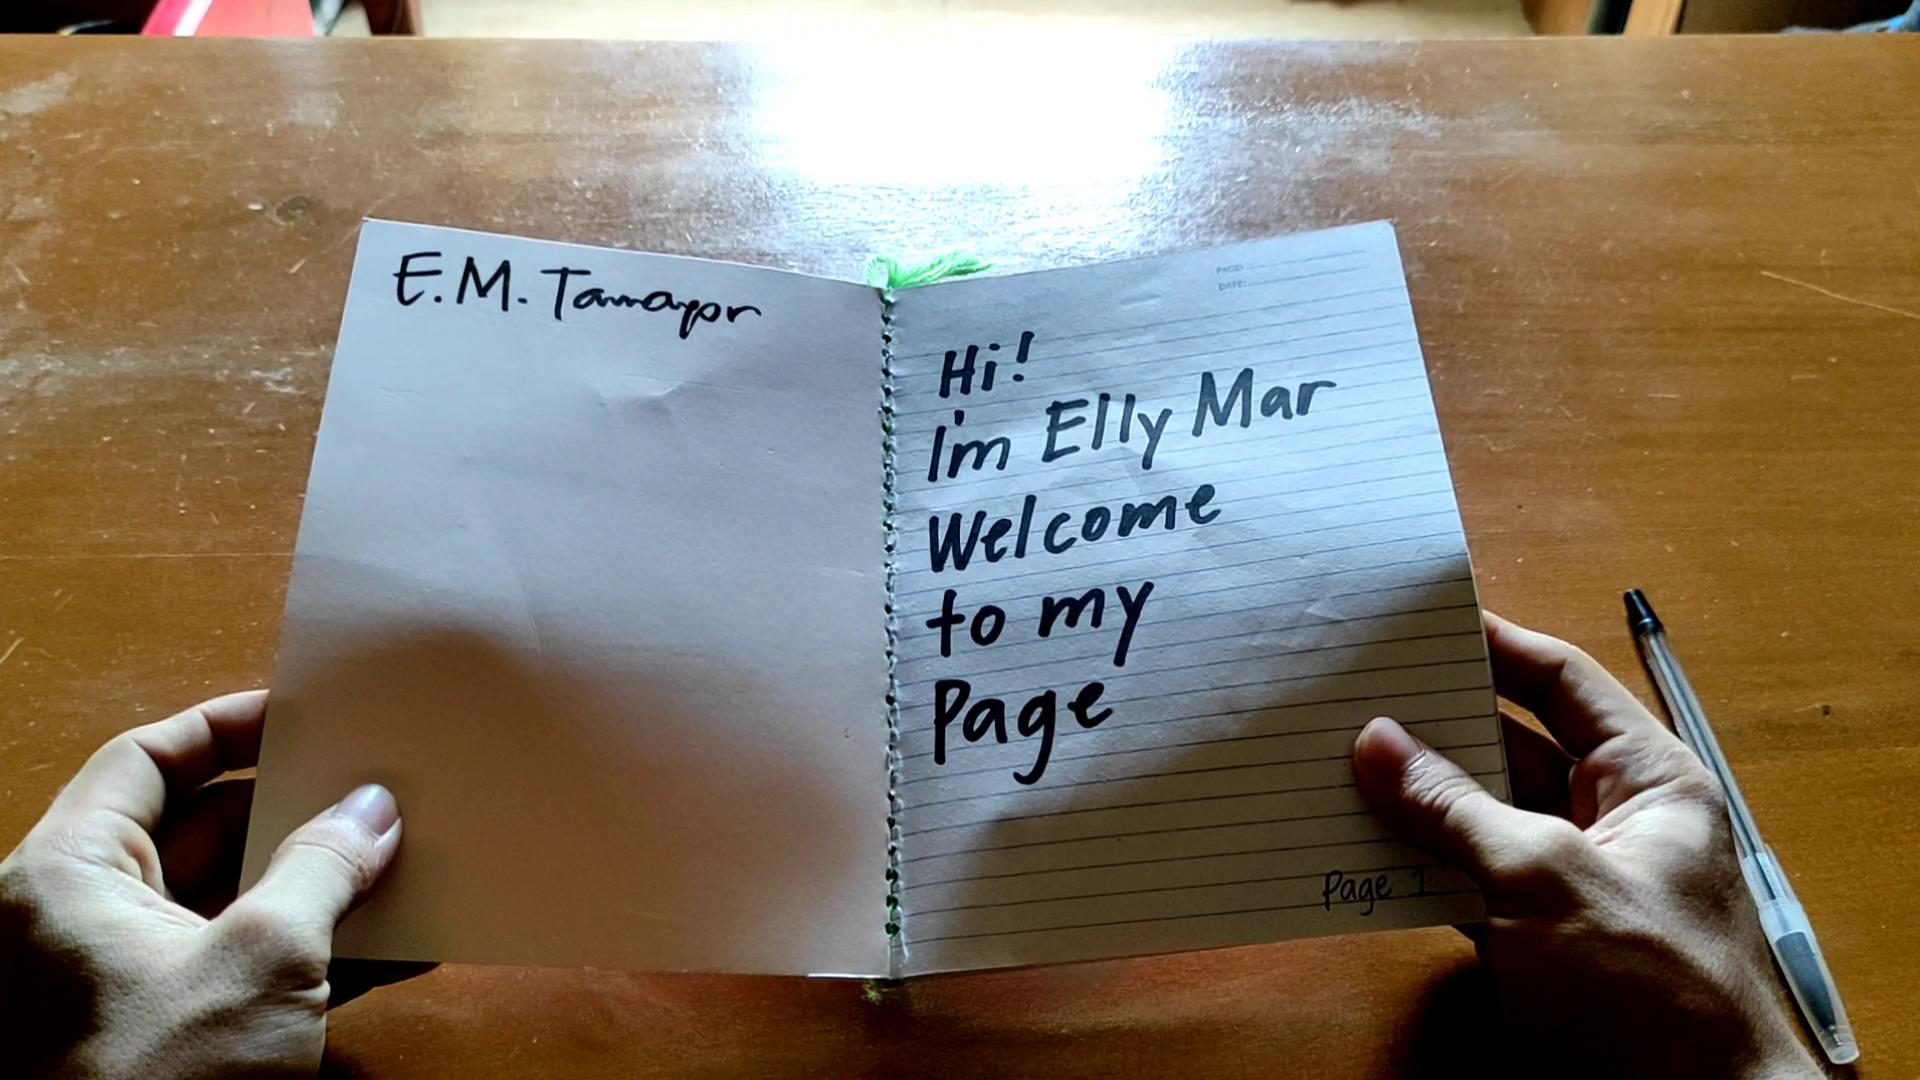 E.M. Tamayor
PAGE:
DATE:
Hi!
I'm Elly Mar
Welcome
to my
Page
Page 1